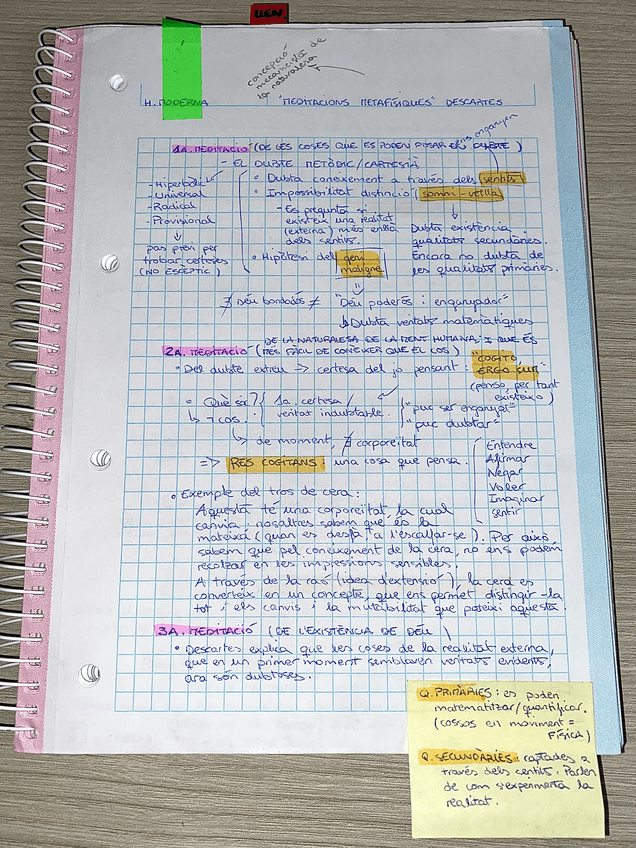 UEN.
concepció
mecanicista de
la naturalesa
H. MODERNA "MEDITACIONS METAFÍSIQUES" DESCARTES
1A. MEDITACIÓ (DE LES COSES QUE ES PODEN POSAR EN DUBTE)
- EL DUBTE METÒDIC/CARTESIÀ
ens enganyen
- Hiperbòlic
- Universal
- Radical
- Provisional
pas previ per
trobar certeses
(NO ESCÈPTIC)
• Dubta coneixement a través dels sentits
• Impossibilitat distinció somni-vetlla
- Es pregunta si
existeix una realitat
(externa) més enllà
dels sentits.
Dubta existència
qualitats secundàries.
Encara no dubta de
les qualitats primàries.
• Hipòtesi del geni
maligne
∄ Déu bondadós ≠ "Déu poderós i enganyador"
↳ Dubta veritats matemàtiques
2A. MEDITACIÓ (DE LA NATURALESA DE LA MENT HUMANA: I QUE ÉS
MÉS FÀCIL DE CONÈIXER QUE EL COS)
• Del dubte extreu → certesa del jo pensant: "COGITO,
ERGO SUM"
(penso, per tant
existeixo)
• Què sóc? { 1a. certesa /
veritat indubtable. } "puc ser enganyat"
"puc dubtar"
↳ ¬ cos.
↳ de moment, ∄ corporeïtat
=> RES COGITANS: una cosa que pensa.
Entendre
Afirmar
Negar
Voler
Imaginar
sentir
• Exemple del tros de cera:
Aquesta té una corporeïtat, la cual
canvia; nosaltres sabem que és la
mateixa (quan es desfà, a l'escalfar-se). Per això
sabem que pel coneixement de la cera, no ens podem
recolzar en les impressions sensibles.
A través de la raó (idea d'extensió), la cera es
converteix en un concepte, que ens permet distingir-la
tot i els canvis i la mutabilitat que pateixi aquesta.
3A. MEDITACIÓ (DE L'EXISTÈNCIA DE DÉU)
• Descartes explica que les coses de la realitat externa,
que en un primer moment semblaven veritats evidents,
ara són dubtoses.
Q. PRIMÀRIES: es poden
matematitzar/quantificar.
(cossos en moviment =
FÍSICA)
Q. SECUNDÀRIES: captades a
través dels sentits. Parlen
de com s'experimenta la
realitat.